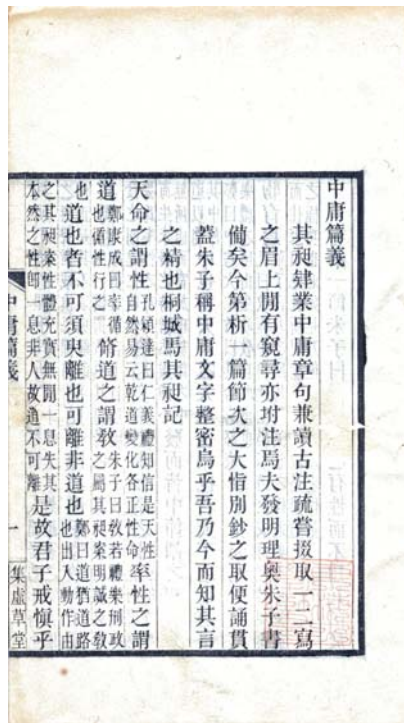 中庸篇義
其昶肄業中庸章句兼讀古注疏嘗掇取一二寫
之眉上閒有窺尋亦坿注焉夫發明理奧朱子書
備矣今第析一篇節次之大恉別鈔之取便誦貫
蓋朱子稱中庸文字整密烏乎吾乃今而知其言
之精也桐城馬其昶記
天命之謂性孔穎達曰仁義禮知信是天性自然易云乾道變化各正性命率性之謂
道鄭康成曰率循也循性行之脩道之謂敎朱子曰敎若禮樂刑政之屬其昶案明誠之敎
也道也者不可須臾離也可離非道也鄭曰道猶道路也出入動作由
之其昶案性體充實無閒一息失其本然之性卽一息非人故道不可離是故君子戒慎乎
中庸篇義
一
集虛草堂